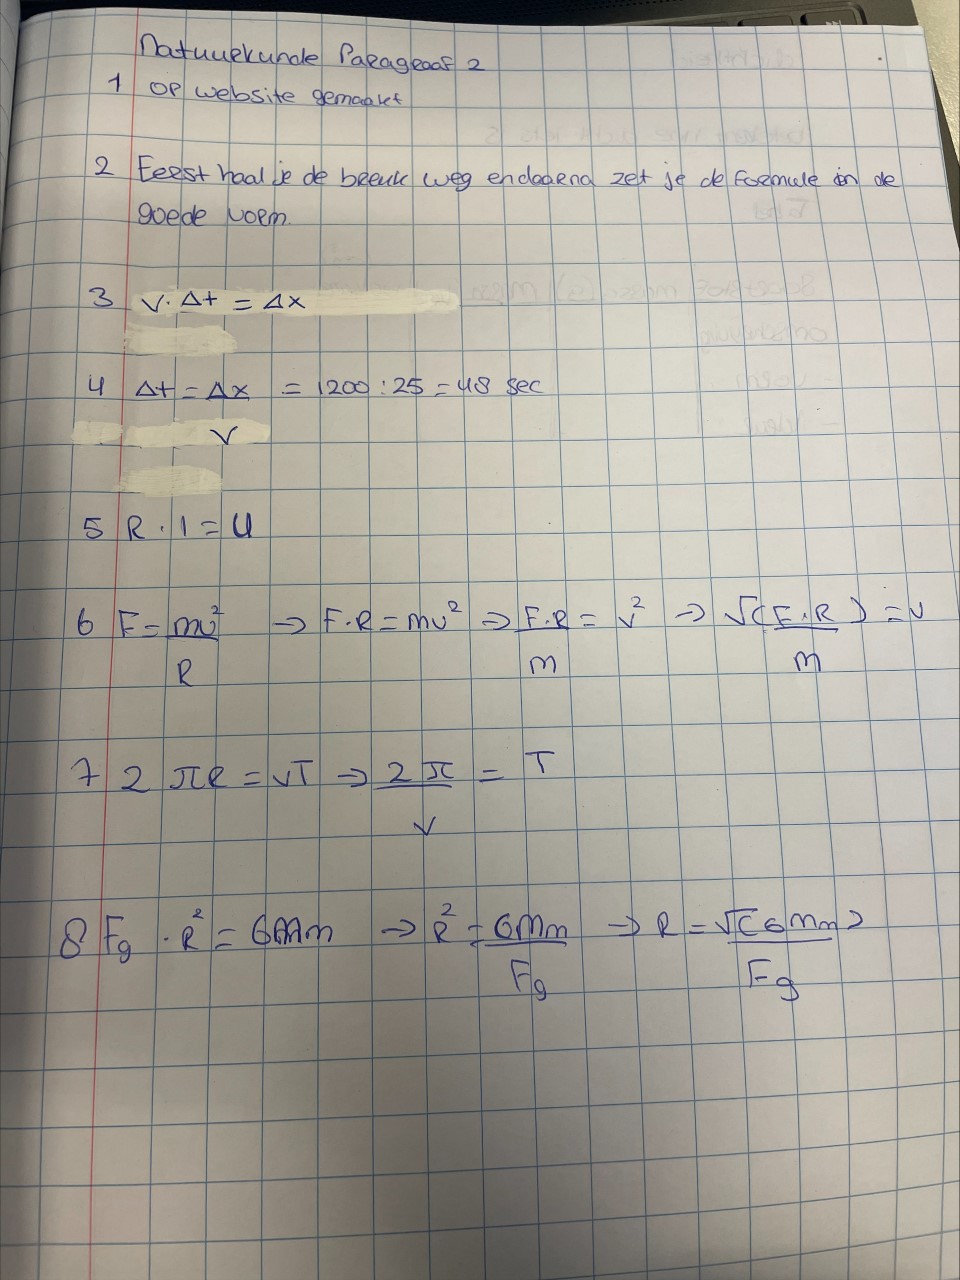 Natuurkunde Paragraaf 2
1 op website gemaakt
2 Eerst haal je de breuk weg en daarna zet je de formule in de
goede vorm.
3 v · Δt = Δx
4 Δt = Δx = 1200 : 25 = 48 sec
v
5 R · I = U
6 F = mv² → F·R = mv² → F·R = v² → √(F·R) = v
R m m
7 2πR = vT → 2π = T
v
8 Fg · R² = GMm → R² = GMm → R = √(GMm)
Fg Fg